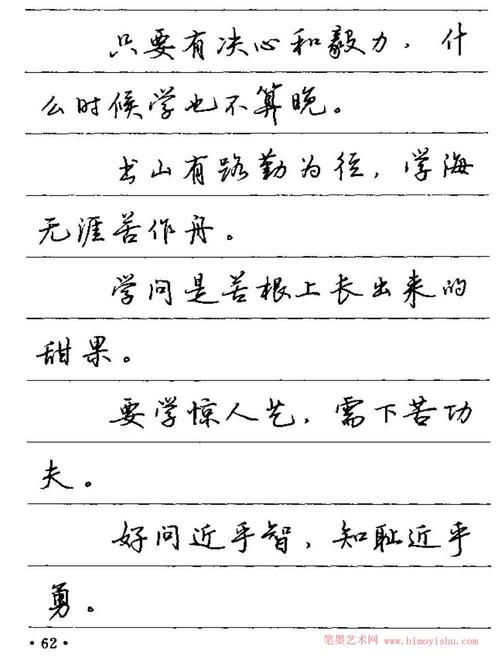 只要有决心和毅力，什
么时候学也不算晚。
书山有路勤为径，学海
无涯苦作舟。
学问是苦根上长出来的
甜果。
要学惊人艺，需下苦功
夫。
好问近乎智，知耻近乎
勇。
·62·
笔墨艺术网 www.bimoyishu.com